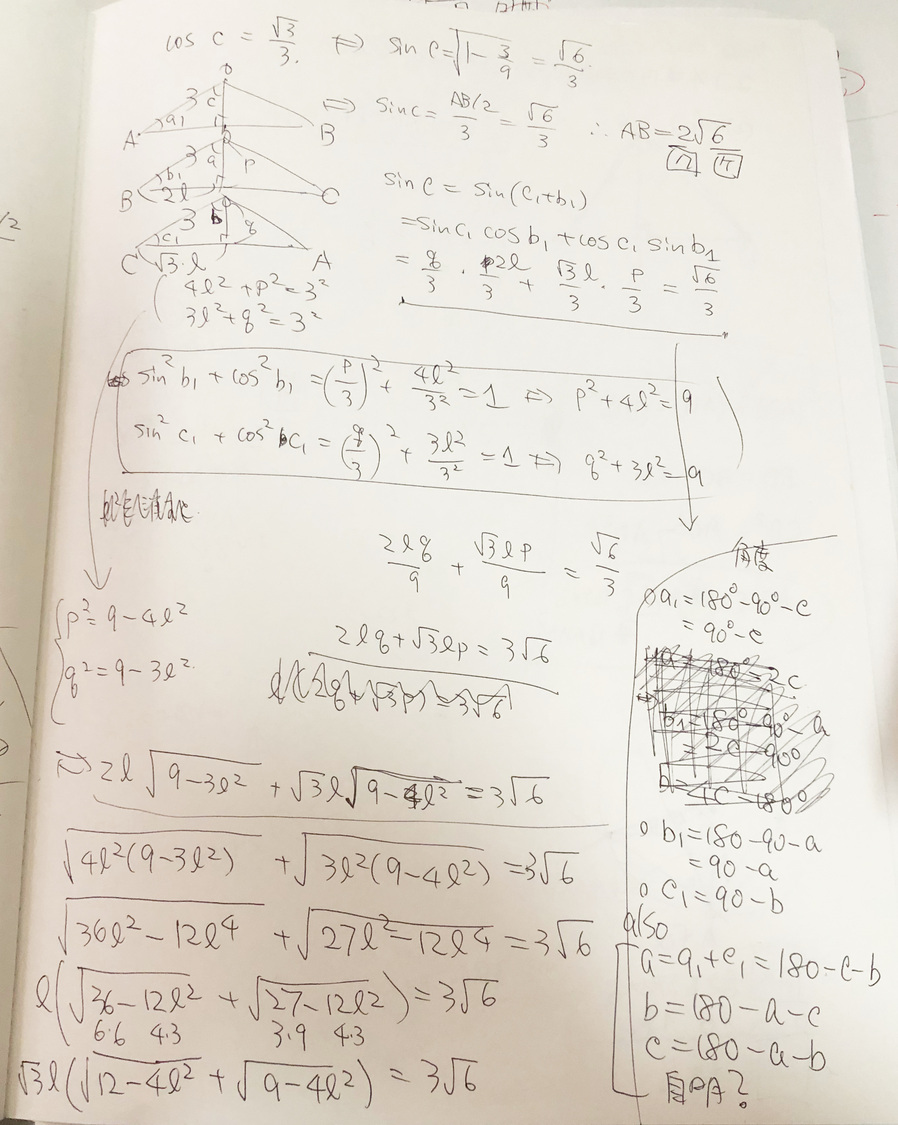 cos c = √3/3. ⇔ sin c = √(1 - 3/9) = √6/3.
⇔ sin c = (AB/2)/3 = √6/3 ∴ AB = 2√6
O
3 c
A a₁ B
3 a p
b₁
B 2l C
3 b q
c₁
C √3·l A
4l² + p² = 3²
3l² + q² = 3²
sin c = sin(c₁+b₁)
= sin c₁ cos b₁ + cos c₁ sin b₁
= q/3 · 2l/3 + √3l/3 · p/3 = √6/3
sin² b₁ + cos² b₁ = (p/3)² + 4l²/3² = 1 ⇔ p² + 4l² = 9
sin² c₁ + cos² c₁ = (q/3)² + 3l²/3² = 1 ⇔ q² + 3l² = 9
2lq/9 + √3lp/9 = √6/3
p² = 9 - 4l²
q² = 9 - 3l²
2lq + √3lp = 3√6
l(2q + √3p) = 3√6
⇔ 2l√(9 - 3l²) + √3l√(9 - 4l²) = 3√6
√(4l²(9 - 3l²)) + √(3l²(9 - 4l²)) = 3√6
√(36l² - 12l⁴) + √(27l² - 12l⁴) = 3√6
l(√(36 - 12l²) + √(27 - 12l²)) = 3√6
6·6 4·3 3·9 4·3
√3l(√(12 - 4l²) + √(9 - 4l²)) = 3√6
角度
a₁ = 180° - 90° - c
= 90° - c
b₁ = 180 - 90 - a
= 90 - a
c₁ = 90 - b
also
a = a₁ + c₁ = 180 - c - b
b = 180 - a - c
c = 180 - a - b
自明?